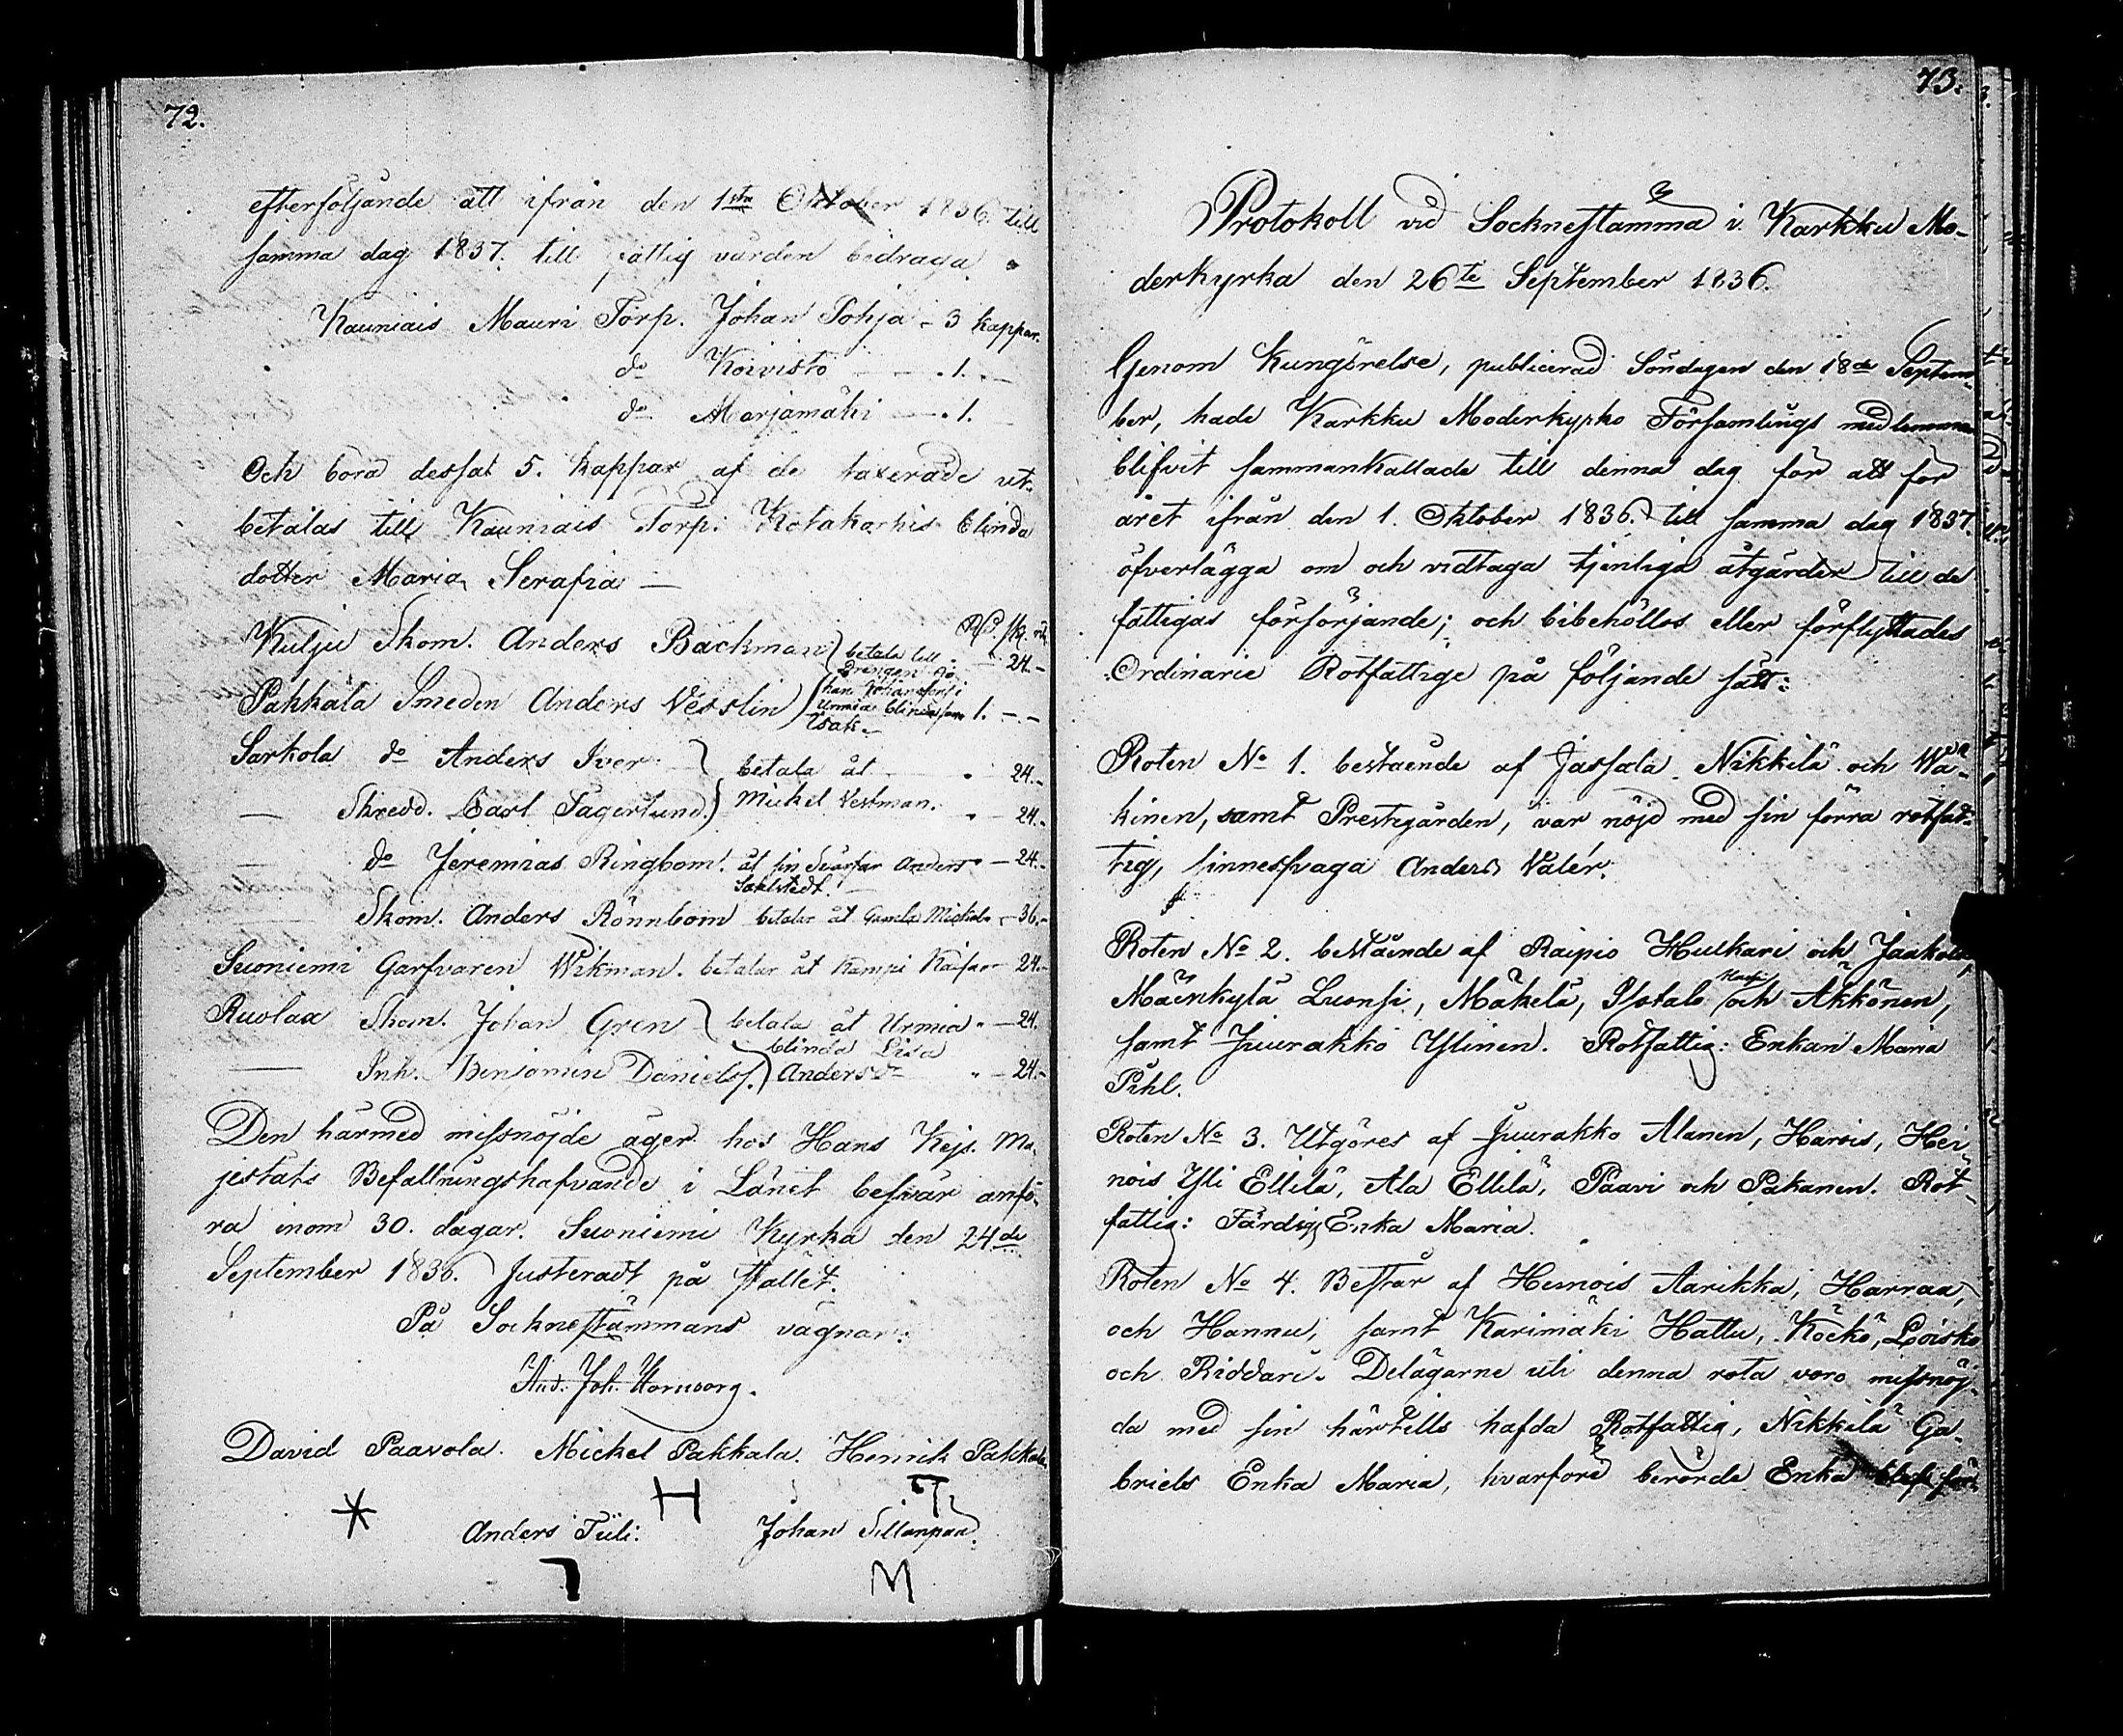 72.
efterföljande att ifrån den 1sta Oktober 1836. till
samma dag 1837. till fattig vården bidraga.
Kauniais Mauri Torp. Johan Pohja - 3 kappar.
do Koivisto - - . 1. -
do Marjamäki - . 1.
Och bora dessa 5. kappar af de taxerade ut-
betalas till Kauniais Torp. Kotakorkis blinda
dotter Maria Serafia —
Kulju Skom. Anders Backman betala till - 24. -
Drängen Jo-
Pakkala Smeden Anders Vesslin han Johanssons i
Urmia blinda son 1. - -
Isak. -
Sarkola do Anders Iver betala åt . 24. -
— Skredd. Carl Fagerlund. Mickel Vestman. . - 24. -
— do Jeremias Ringbom. åt sin Svärfar Anders - 24. -
Sahlstedt -
Skom. Anders Rönnbom betalar åt Gamla Mickel - 36. -
Suoniemi Garfvaren Wikman. betalar åt Kampi Kaisa - 24. -
Ruolaa Skom. Johan Gren betala åt Urmia . - 24.
blinda Lisa
— Inh. Benjamin Daniels. Andersdr . - 24. -
Den härmed missnöjde äger hos Hans Kejs. Ma-
jestäts Befallningshafvande i Länet besvär anfö-
ra inom 30. dagar. Suoniemi Kyrka den 24de
September 1836. Justeradt på stället.
På Sockneståmmans vägnar:
And. Joh. Hornborg.
David Paavola. Mickel Pakkala. Henrik Pakkala
Anders Tüli. Johan Sillanpää.
73.
Protokoll vid Sockneståmma i Karkku Mo-
derkyrka den 26te September 1836.
Genom Kungörelse, publicerad Söndagen den 18de Septem-
ber, hade Karkku Moderkyrko Församlings medlemmar
blifvit sammankallade till denna dag för att för
året ifrån den 1. Oktober 1836. till samma dag 1837.
öfverlägga om och vidtaga tjenliga åtgärder till de
fattigas försörjande; och bibehöllos eller förflyttades
Ordinarie Rotfattige på följande sätt:
Roten No 1. bestående af Jassala Nikkilä och Wä-
kinen, samt Prestegården, var nöjd med sin förra rotfat-
tig, sinnessvaga Anders Valér.
Roten No 2. bestående af Raipio Hulkari och Jaakola,
Mäenkylä Luonsi, Mäkelä, Isotalo och Akkönen,
samt Juurakko Ylinen. Rotfattig: Enkan Maria
Pihl.
Roten No 3. Utgöres af Juurakko Alanen, Harois, Hei-
nois Yli Ellilä, Ala Ellilä, Paavi och Pakanen. Rot-
fattig: Färdigs Enka Maria.
Roten No 4. Består af Heinois Aarikka, Harraa,
och Hannu, samt Karimäki Hattu, Köckö, Loisko
och Riddari. Delägarne uti denna rota voro missnöj-
da med sin härtills hafda Rotfattig, Nikkilä Ga-
briels Enka Maria, hvarföre berörde Enka blef för-